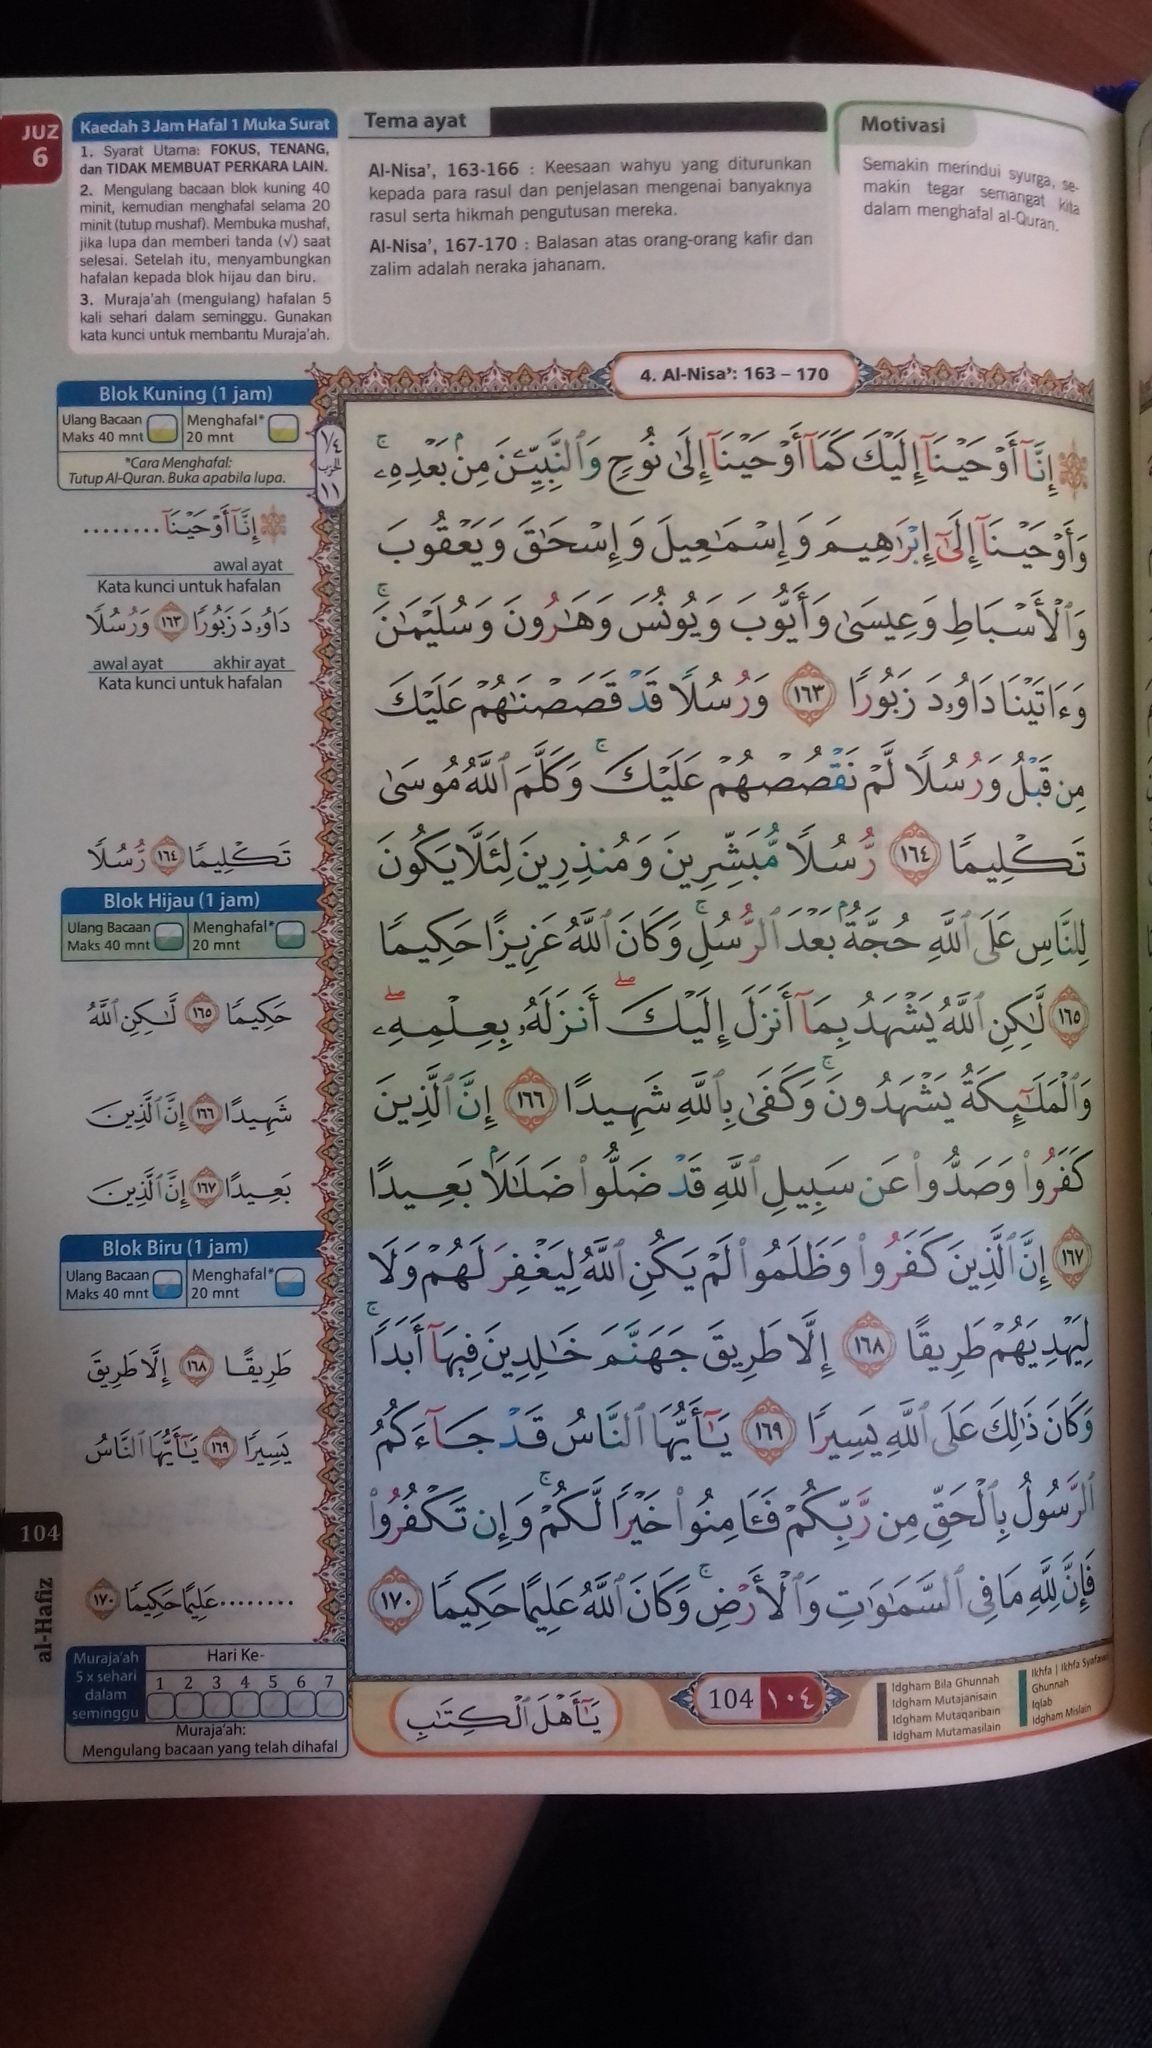 JUZ
6
Kaedah 3 Jam Hafal 1 Muka Surat
1. Syarat Utama: FOKUS, TENANG,
dan TIDAK MEMBUAT PERKARA LAIN.
2. Mengulang bacaan blok kuning 40
minit, kemudian menghafal selama 20
minit (tutup mushaf). Membuka mushaf,
jika lupa dan memberi tanda (√) saat
selesai. Setelah itu, menyambungkan
hafalan kepada blok hijau dan biru.
3. Muraja'ah (mengulang) hafalan 5
kali sehari dalam seminggu. Gunakan
kata kunci untuk membantu Muraja'ah.
Tema ayat
Al-Nisa', 163-166 : Keesaan wahyu yang diturunkan
kepada para rasul dan penjelasan mengenai banyaknya
rasul serta hikmah pengutusan mereka.
Al-Nisa', 167-170 : Balasan atas orang-orang kafir dan
zalim adalah neraka jahanam.
Motivasi
Semakin merindui syurga, se-
makin tegar semangat kita
dalam menghafal al-Quran.
4. Al-Nisa': 163 – 170
۞ إِنَّآ أَوْحَيْنَآ إِلَيْكَ كَمَآ أَوْحَيْنَآ إِلَىٰ نُوحٍ وَٱلنَّبِيِّـۧنَ مِنۢ بَعْدِهِۦۚ
وَأَوْحَيْنَآ إِلَىٰٓ إِبْرَٰهِيمَ وَإِسْمَٰعِيلَ وَإِسْحَٰقَ وَيَعْقُوبَ
وَٱلْأَسْبَاطِ وَعِيسَىٰ وَأَيُّوبَ وَيُونُسَ وَهَٰرُونَ وَسُلَيْمَٰنَۚ
وَءَاتَيْنَا دَاوُۥدَ زَبُورًا ١٦٣ وَرُسُلًا قَدْ قَصَصْنَٰهُمْ عَلَيْكَ
مِن قَبْلُ وَرُسُلًا لَّمْ نَقْصُصْهُمْ عَلَيْكَۚ وَكَلَّمَ ٱللَّهُ مُوسَىٰ
تَكْلِيمًا ١٦٤ رُّسُلًا مُّبَشِّرِينَ وَمُنذِرِينَ لِئَلَّا يَكُونَ
لِلنَّاسِ عَلَى ٱللَّهِ حُجَّةٌۢ بَعْدَ ٱلرُّسُلِۚ وَكَانَ ٱللَّهُ عَزِيزًا حَكِيمًا
١٦٥ لَّٰكِنِ ٱللَّهُ يَشْهَدُ بِمَآ أَنزَلَ إِلَيْكَۖ أَنزَلَهُۥ بِعِلْمِهِۦۖ
وَٱلْمَلَٰٓئِكَةُ يَشْهَدُونَۚ وَكَفَىٰ بِٱللَّهِ شَهِيدًا ١٦٦ إِنَّ ٱلَّذِينَ
كَفَرُوا۟ وَصَدُّوا۟ عَن سَبِيلِ ٱللَّهِ قَدْ ضَلُّوا۟ ضَلَٰلًۢا بَعِيدًا
١٦٧ إِنَّ ٱلَّذِينَ كَفَرُوا۟ وَظَلَمُوا۟ لَمْ يَكُنِ ٱللَّهُ لِيَغْفِرَ لَهُمْ وَلَا
لِيَهْدِيَهُمْ طَرِيقًا ١٦٨ إِلَّا طَرِيقَ جَهَنَّمَ خَٰلِدِينَ فِيهَآ أَبَدًاۚ
وَكَانَ ذَٰلِكَ عَلَى ٱللَّهِ يَسِيرًا ١٦٩ يَٰٓأَيُّهَا ٱلنَّاسُ قَدْ جَآءَكُمُ
ٱلرَّسُولُ بِٱلْحَقِّ مِن رَّبِّكُمْ فَـَٔامِنُوا۟ خَيْرًا لَّكُمْۚ وَإِن تَكْفُرُوا۟
فَإِنَّ لِلَّهِ مَا فِى ٱلسَّمَٰوَٰتِ وَٱلْأَرْضِۚ وَكَانَ ٱللَّهُ عَلِيمًا حَكِيمًا ١٧٠
١/٤
الحزب
١١
Blok Kuning (1 jam)
Ulang Bacaan
Maks 40 mnt
Menghafal*
20 mnt
*Cara Menghafal:
Tutup Al-Quran. Buka apabila lupa.
۞ إِنَّآ أَوْحَيْنَآ ........
awal ayat
Kata kunci untuk hafalan
دَاوُۥدَ زَبُورًا ١٦٣ وَرُسُلًا
awal ayat akhir ayat
Kata kunci untuk hafalan
تَكْلِيمًا ١٦٤ رُّسُلًا
Blok Hijau (1 jam)
Ulang Bacaan
Maks 40 mnt
Menghafal*
20 mnt
حَكِيمًا ١٦٥ لَّٰكِنِ ٱللَّهُ
شَهِيدًا ١٦٦ إِنَّ ٱلَّذِينَ
بَعِيدًا ١٦٧ إِنَّ ٱلَّذِينَ
Blok Biru (1 jam)
Ulang Bacaan
Maks 40 mnt
Menghafal*
20 mnt
طَرِيقًا ١٦٨ إِلَّا طَرِيقَ
يَسِيرًا ١٦٩ يَٰٓأَيُّهَا ٱلنَّاسُ
........عَلِيمًا حَكِيمًا ١٧٠
104
al-Hafiz
Muraja'ah
5 x sehari
dalam
seminggu
Hari Ke-
1 2 3 4 5 6 7
Muraja'ah:
Mengulang bacaan yang telah dihafal
يَٰٓأَهْلَ ٱلْكِتَٰبِ
104 ١٠٤
Idgham Bila Ghunnah
Idgham Mutajanisain
Idgham Mutaqaribain
Idgham Mutamasilain
Ikhfa | Ikhfa Syafawi
Ghunnah
Iqlab
Idgham Mislain